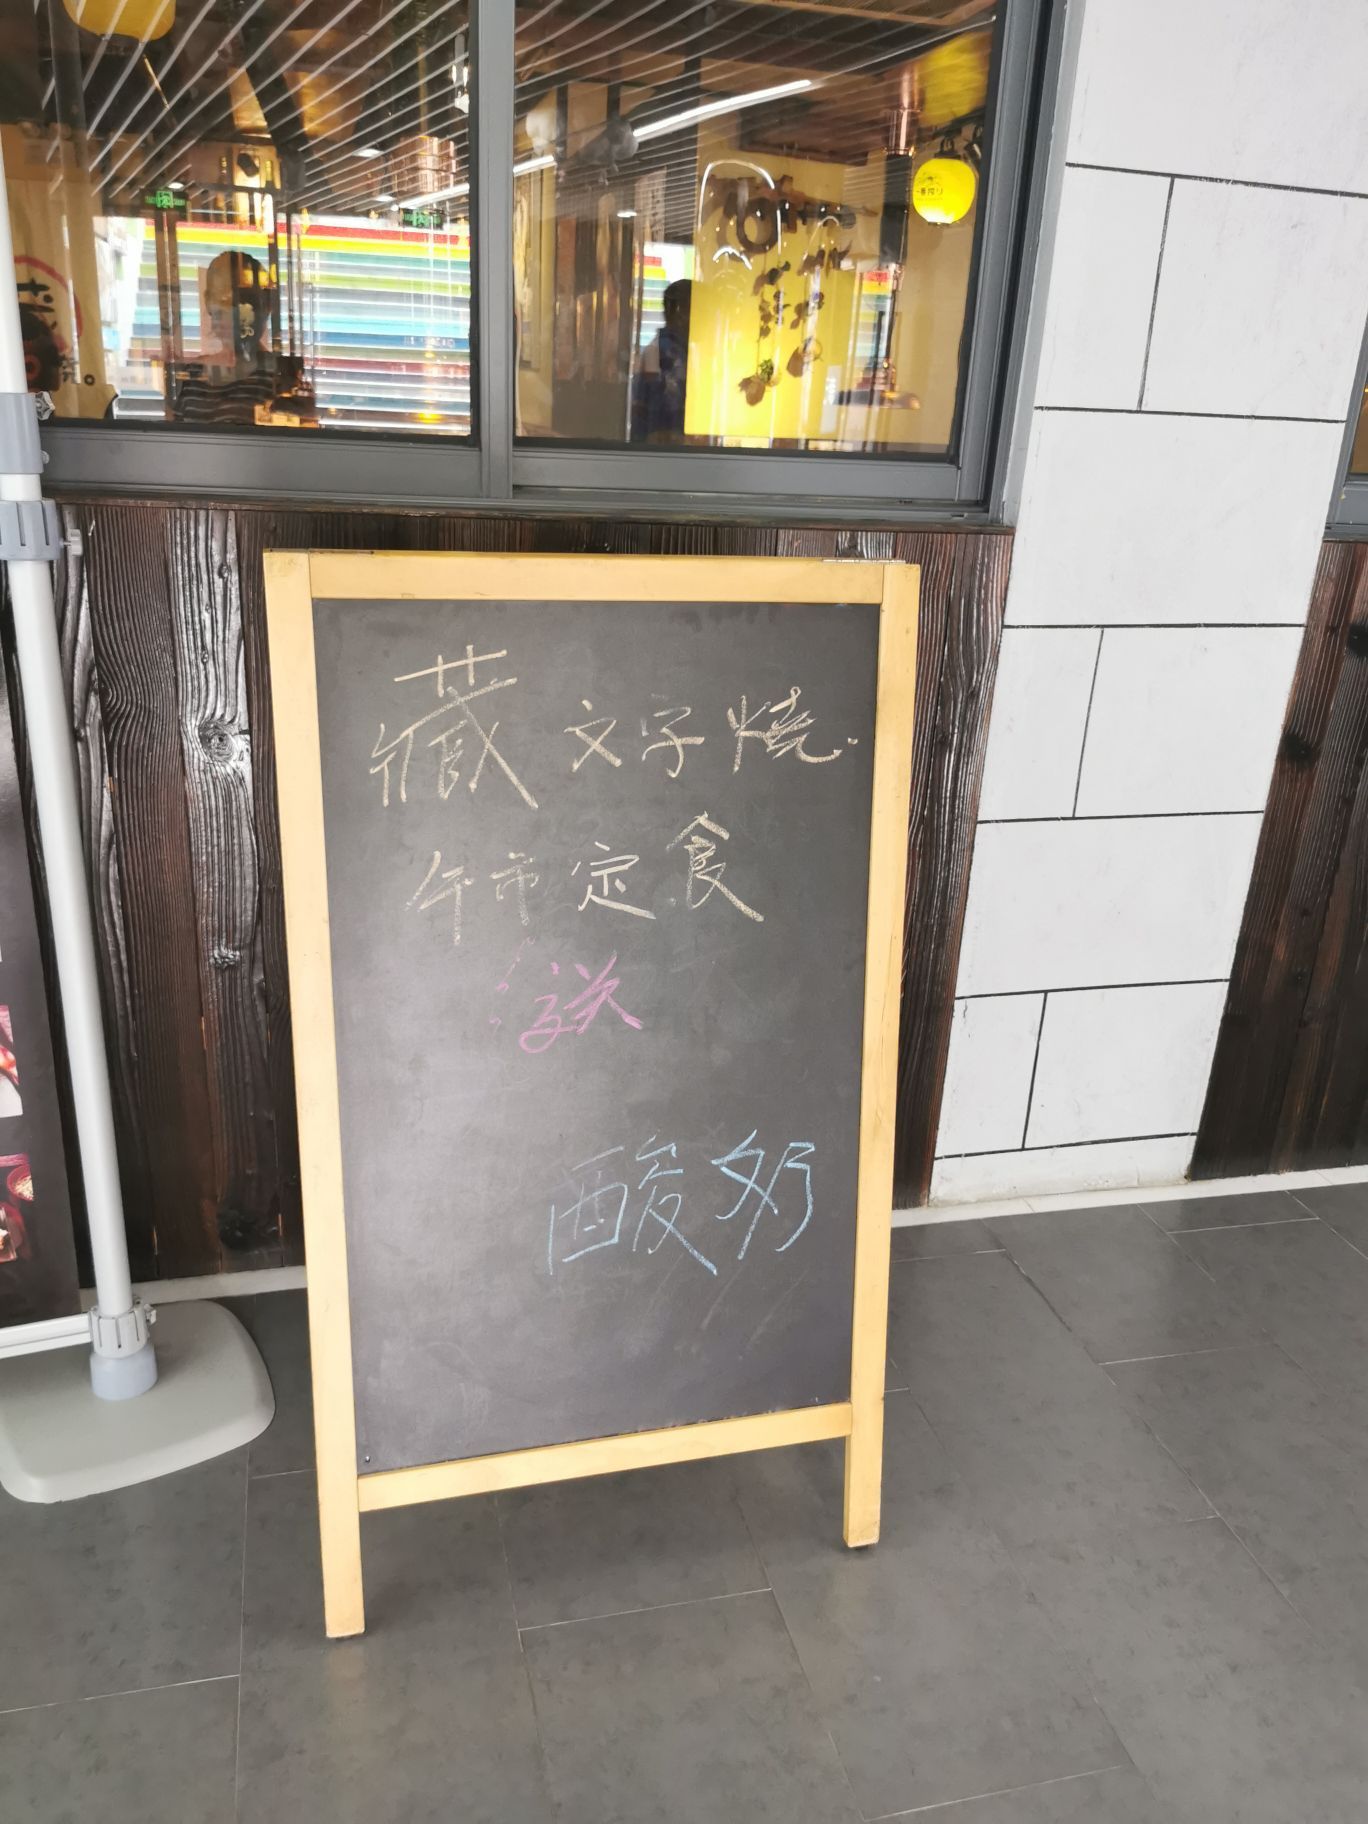 藏文字烧
午市定食
送
酸奶